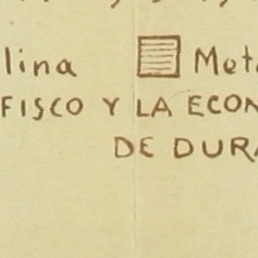 lina Met
FISCO Y LA ECON
DE DURA